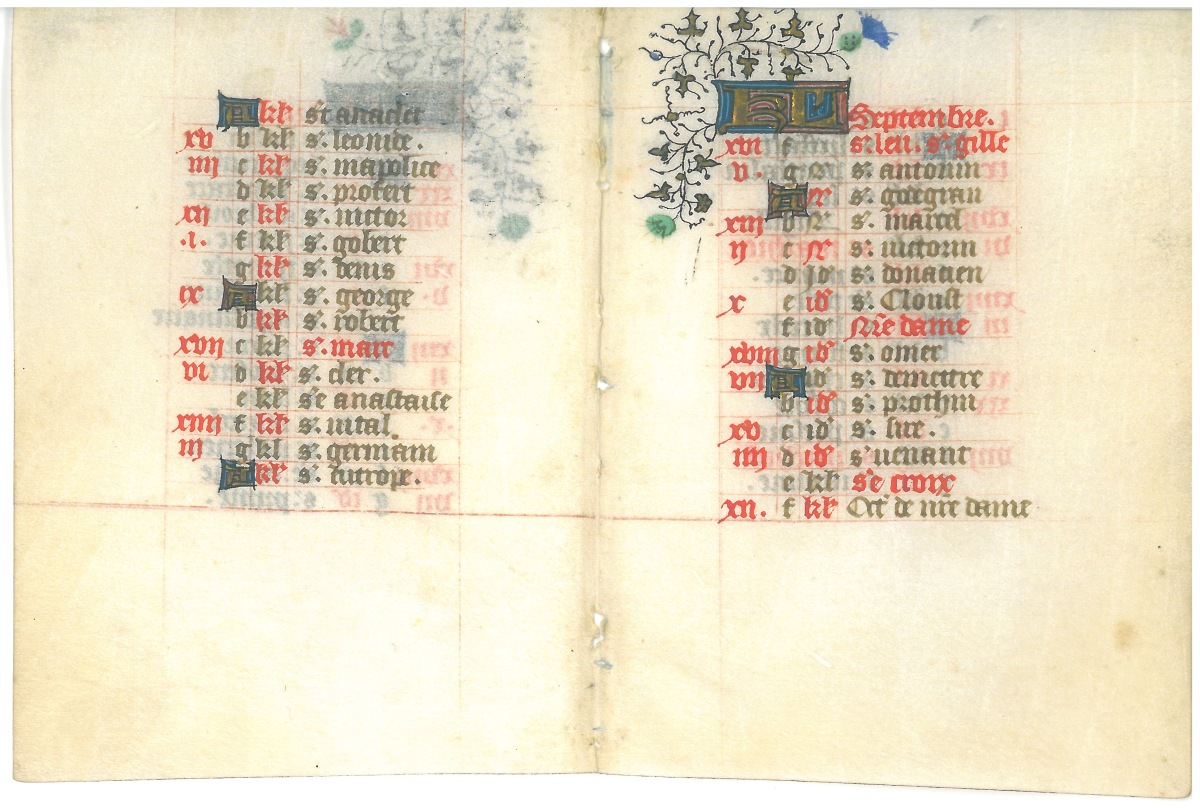 A kl' st anaclet
xv b kl' s'. leonide.
iiij c kl' s'. mapolice
d kl' s'. protert
xij e kl' s'. victor
.i. f kl' s'. gobert
g kl' s'. denis
ix A kl' s'. george
b kl' s'. robert
xvij c kl' s'. marc
vi d kl' s'. cler.
e kl' s'e anastaise
xiiij f kl' s'. vital.
iij g kl s'. germain
A kl' s'. eutrope.
KL Septembre.
xvi f s'. leu. s'. gille
v. g N' s'. antonin
A N' s'. gorgian
xiij b N' s'. marcel
ij c N' s'. victorin
d id' s'. donatien
x e id' s'. Cloust
f id' N're dame
xviij g id' s'. omer
vij A id' s'. demettre
b id' s'. prothin
xv c id' s'. sire.
iiij d id' s' venant
e kl' s'e croix
xij. f kl' Oct' de n're dame